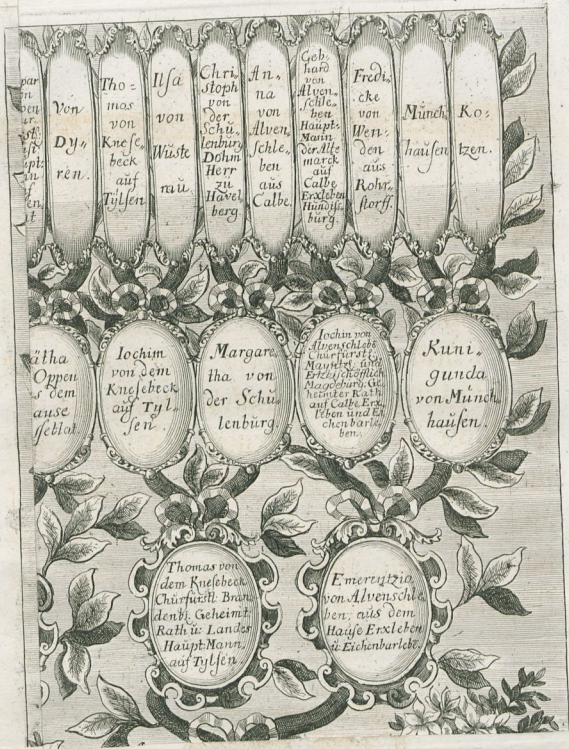 Von
Dy„
ren.
Tho=
mas
von
Kneſe„
beck
auf
Tÿlſen
Ilſa
von
Wüſte
rau.
Chri„
ſtoph
von
der
Schu„
lenburg
Dohm
Herr
zu
Havel
berg
An„
na
von
Alven
ſchle„
ben
aus
Calbe.
Geb„
hard
von
Alven„
ſchle„
ben
Haupt„
Mann
der Alte
marck
auf
Calbe
Erxleben
Hundiſ„
burg.
Fredi„
cke
von
Wen„
den
aus
Rohr„
ſtorff.
Münch
hauſen
Ko„
tzen.
ätha
Oppen
s dem
auſe
Iochim
von dem
Kneſebeck
auf Tyl„
ſen.
Margare„
tha von
der Schu„
lenburg.
Iochin von
Alvenſchlebē
Churfürſtl.
Mayntz. und
Ertzbiſchöfflich
Magdeburg. Ge„
heimter Rath
auf Calbe Erx„
leben und Ei
chenbarle„
ben.
Kuni„
gunda
von Münch
hauſen.
Thomas von
dem Kneſebeck
Churfürſtl: Bran
denb. Geheimt:
Rath u: Landes
Haupt Mann
auf Tylſen
Emerentzia
von Alvenſchle„
ben, aus dem
Hauſe Erxleben
u: Eichenbarlebē.